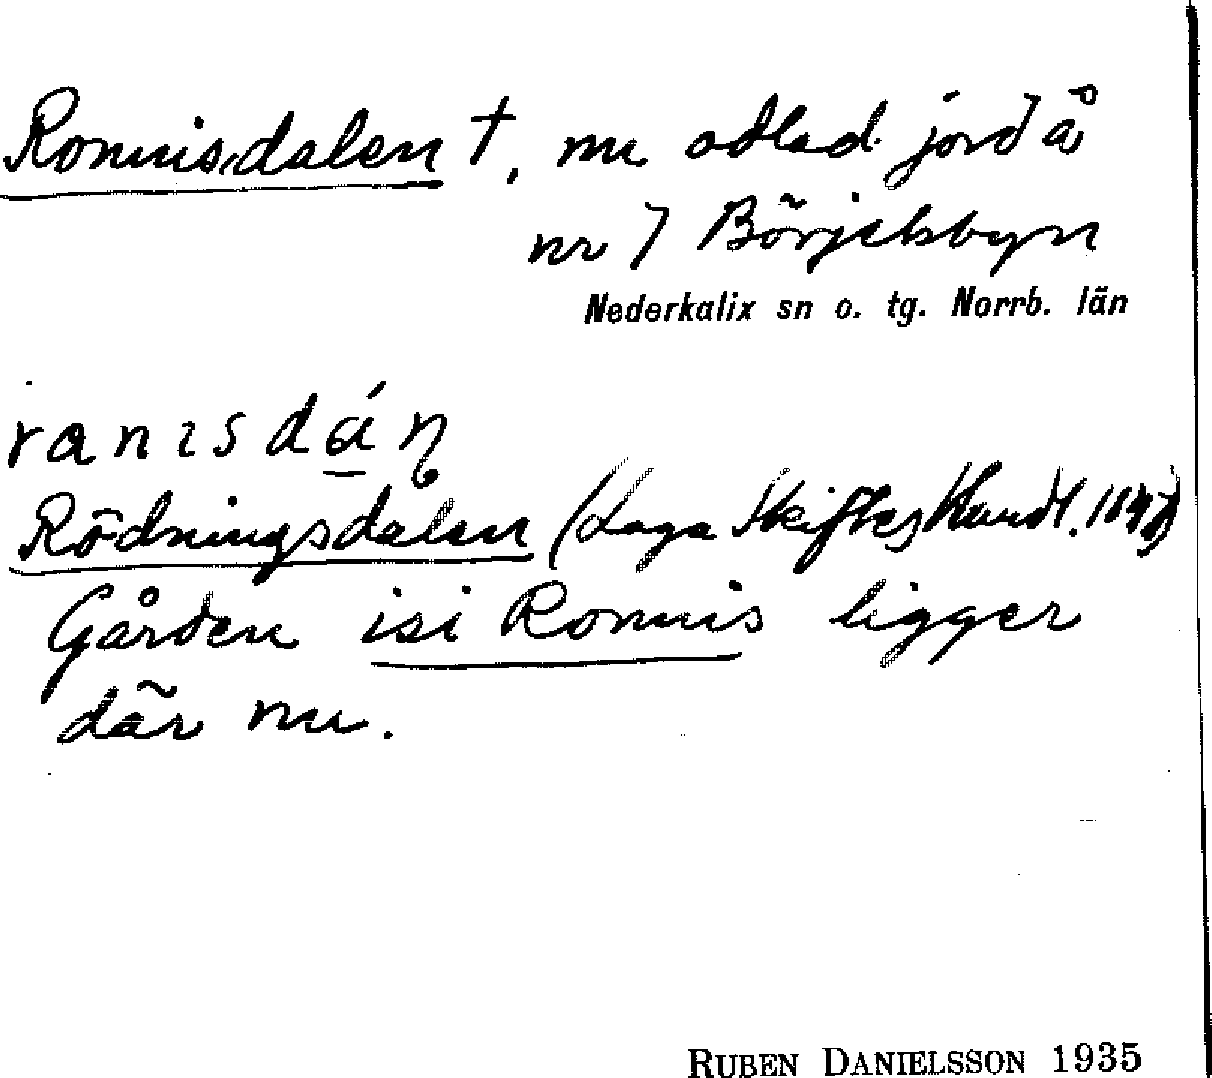 Ronnisdalen †, nu odlad jord å
nr 7 Börjelsbyn
Nederkalix sn o. tg. Norrb. län
ranɪsdán
Rödningsdalen (Laga Skifteshandl.
Gården isi Ronnis ligger
där nu.
RUBEN DANIELSSON 1935